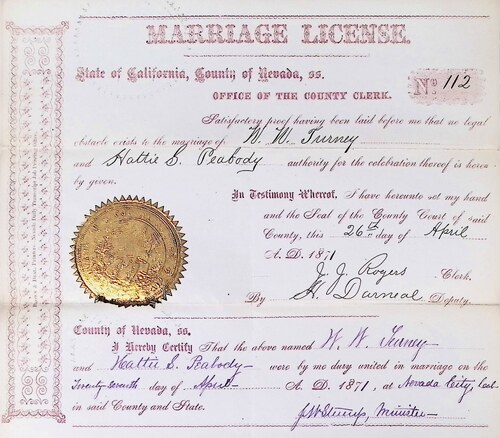 MARRIAGE LICENSE.
State of California, County of Nevada, ss.
No. 112
OFFICE OF THE COUNTY CLERK.
Satisfactory proof having been laid before me that no legal
obstacle exists to the marriage of W. W. Turney
and Hattie S. Peabody authority for the celebration thereof is here-
by given.
In Testimony Whereof, I have hereunto set my hand
and the Seal of the County Court of said
County, this 26th day of April
A. D. 1871
J. J. Rogers Clerk.
By H. Darneal Deputy.
County of Nevada, ss.
I Hereby Certify That the above named W. W. Turney
and Hattie S. Peabody were by me duly united in marriage on the
Twenty-seventh day of April A. D. 1871, at Nevada City, Cal
in said County and State.
Minister